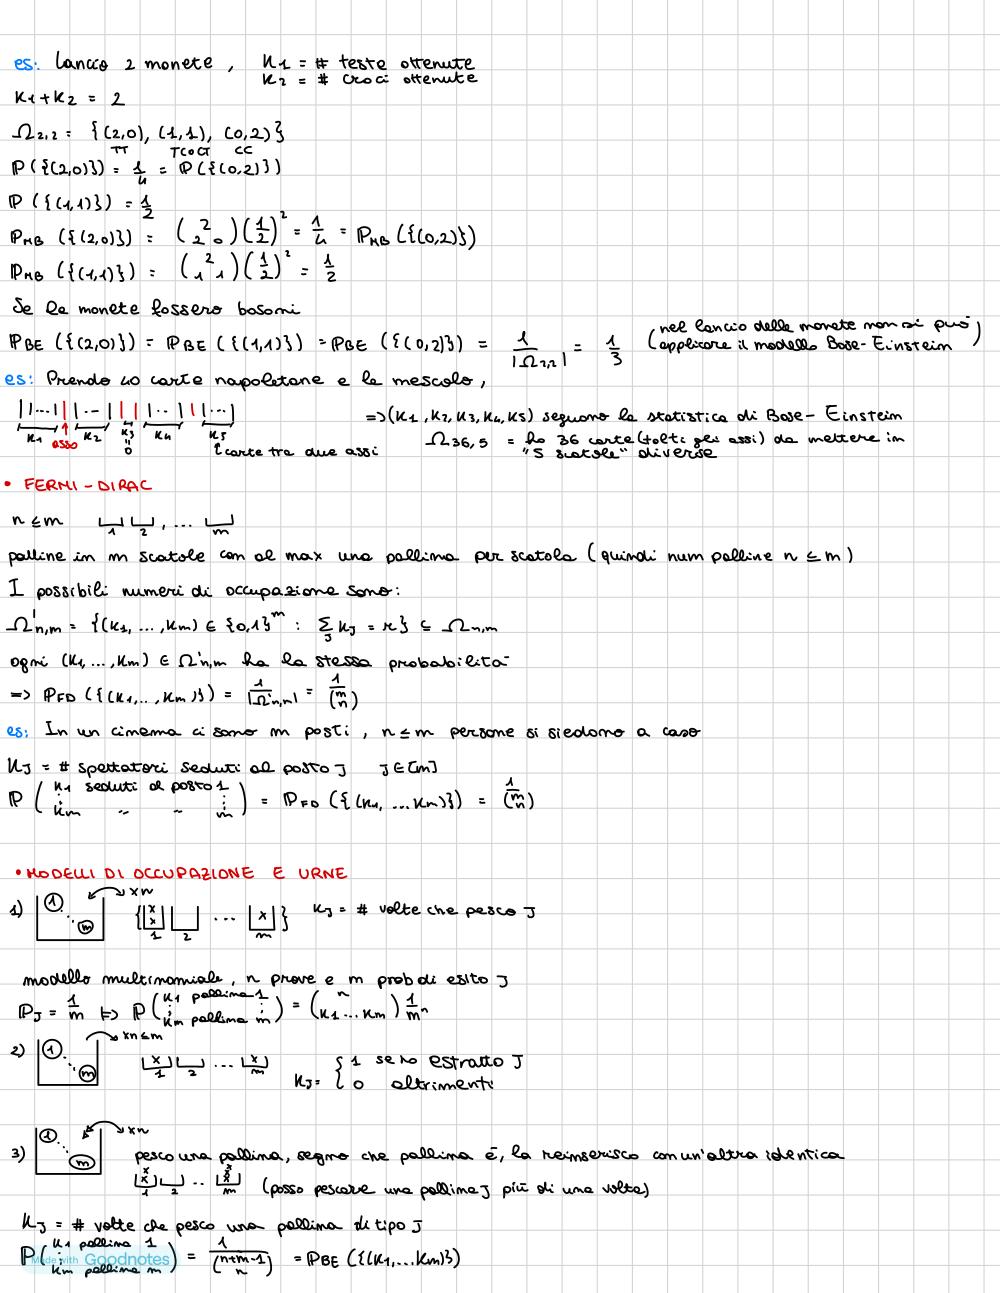 es: Lancio 2 monete , K1 = # teste ottenute
K2 = # croci ottenute
K1+K2 = 2
Ω2,2 = {(2,0), (1,1), (0,2)}
TT TCoCT CC
P({(2,0)}) = 1/4 = P({(0,2)})
P({(1,1)}) = 1/2
PMB ({(2,0)}) = (2 / 2 0)(1/2)² = 1/4 = PMB ({(0,2)})
PMB ({(1,1)}) = (2 / 1 1)(1/2)² = 1/2
Se le monete fossero bosoni
PBE ({(2,0)}) = PBE ({(1,1)}) = PBE ({(0,2)}) = 1/|Ω2,2| = 1/3 (nel lancio delle monete non si può applicare il modello Bose-Einstein)
es: Prendo 40 carte napoletane e le mescolo,
K1 asso K2 K3 = 0 K4 K5
carte tra due assi
=> (K1, K2, K3, K4, K5) seguono la statistica di Bose-Einstein
Ω36,5 = ho 36 carte (tolti gli assi) da mettere in
"5 scatole" diverse
• FERMI-DIRAC
n ≤ m 1 2 , ... m
palline in m scatole con al max una pallina per scatola (quindi num palline n ≤ m)
I possibili numeri di occupazione sono:
Ω'n,m = {(K1, ..., Km) ∈ {0,1}^m : Σj Kj = n} ⊆ Ωn,m
ogni (K1, ..., Km) ∈ Ω'n,m ha la stessa probabilità
=> PFD ({(K1, .., Km)}) = 1/|Ω'n,m| = 1/(m / n)
es: In un cinema ci sono m posti , n ≤ m persone si siedono a caso
KJ = # spettatori seduti al posto J J∈[m]
P (K1 seduti al posto 1 ⋮ Km " " m) = PFD ({(K1, ... Km)}) = 1/(m / n)
• MODELLI DI OCCUPAZIONE E URNE
1) 1 m xn {x x 1 2 ... x m} KJ = # volte che pesco J
modello multinomiale, n prove e m prob di esito J
PJ = 1/m => P (K1 pallina 1 ⋮ Km pallina m) = (n / K1 ... Km) 1/m^n
2) 1 m xn≤m x 1 2 ... x m KJ = { 1 se ho estratto J
0 altrimenti
3) 1 m xn
pesco una pallina, segno che pallina è, la reinserisco con un'altra identica
x x 1 2 .. x x x m (posso pescare una pallina J più di una volta)
KJ = # volte che pesco una pallina di tipo J
P (K1 pallina 1 ⋮ Km pallina m) = 1/(n+m-1 / n) = PBE ({(K1, ... Km)})
Made with Goodnotes